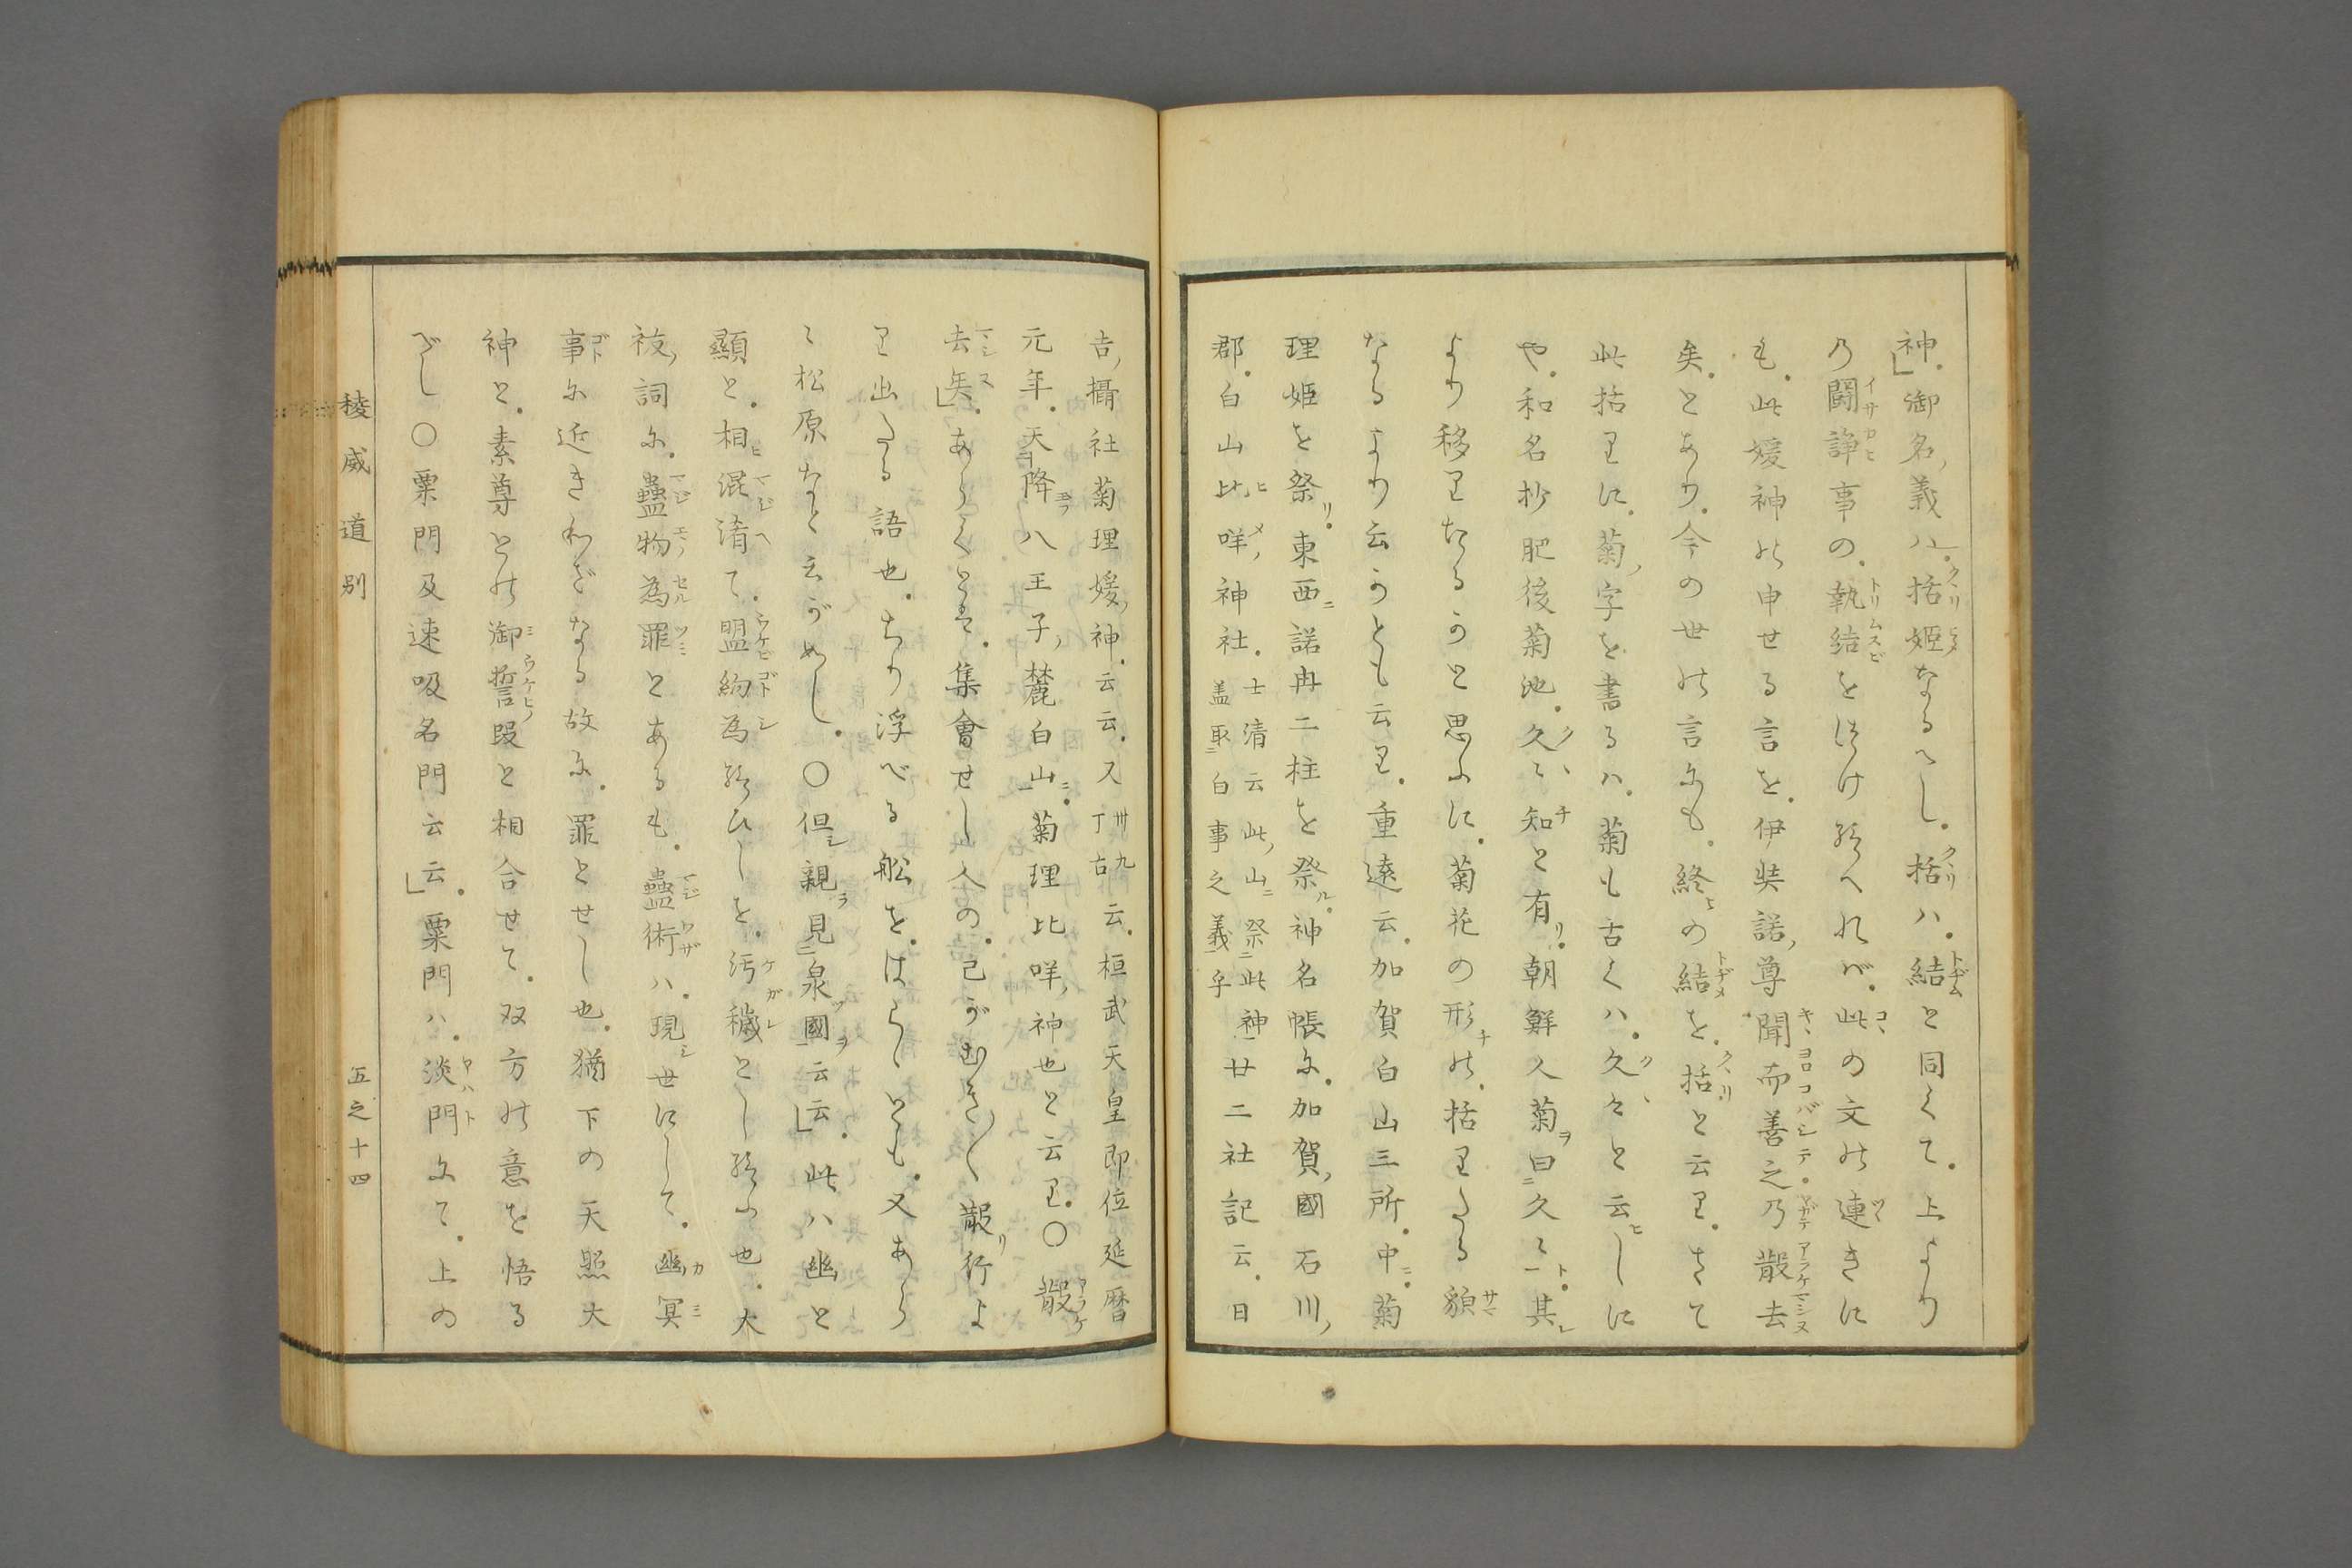 神」御名ノ義ハ括姫なるへし括ハ結と同くて上より
乃闘諍事の執結をつけ給へれバ此の文の連きに
も此媛神の申せる言を伊奘諾ノ尊聞而善之乃散去
矣とあり今の世の言にも終との結を括と云りさて
此括りに菊ノ字を書るハ菊も古くハ久々と云しに
や和名抄肥後菊池久々知と有リ朝鮮人菊ヲ曰久々ト其
より移りたるかと思ふに菊花の形の括りたる貌
なるより云かとも云り重遠云加賀白山三所中ニ菊
理姫を祭リ東西ニ諾冉二柱を祭ル神名帳に加賀ノ國石川ノ
郡白山比咩ノ神社士清云此ノ山ニ祭ニ此神一
蓋取ニ白事之義一乎廿二社記云日
吉ノ攝社菊理媛ノ神云云又卅九丁古云桓武天皇即位延暦
元年天降八王子ノ麓白山ニ菊理比咩ノ神也と云り〇散
去矣」あらくとは集會せし人の己がむき〳〵散リ行よ
り出たる語也ちり浮べる舩をはらゝとも又あら
ゝ松原なと云がめし〇但シ親ラ見ニ泉國ヲ一云云」此ハ幽と
顯と相混淆て盟約為給ひしを汚穢とし給ふ也大
祓ノ詞に蠱物為罪とあるも蠱術ハ現シ世にして幽冥
事に近きわざなる故に罪とせし也猶下の天照大
神と素尊との御誓ノ段と相合せて双方の意を悟る
べし〇粟門及速吸名門云云」粟門ハ淡門にて上の
稜威道別
五之十四